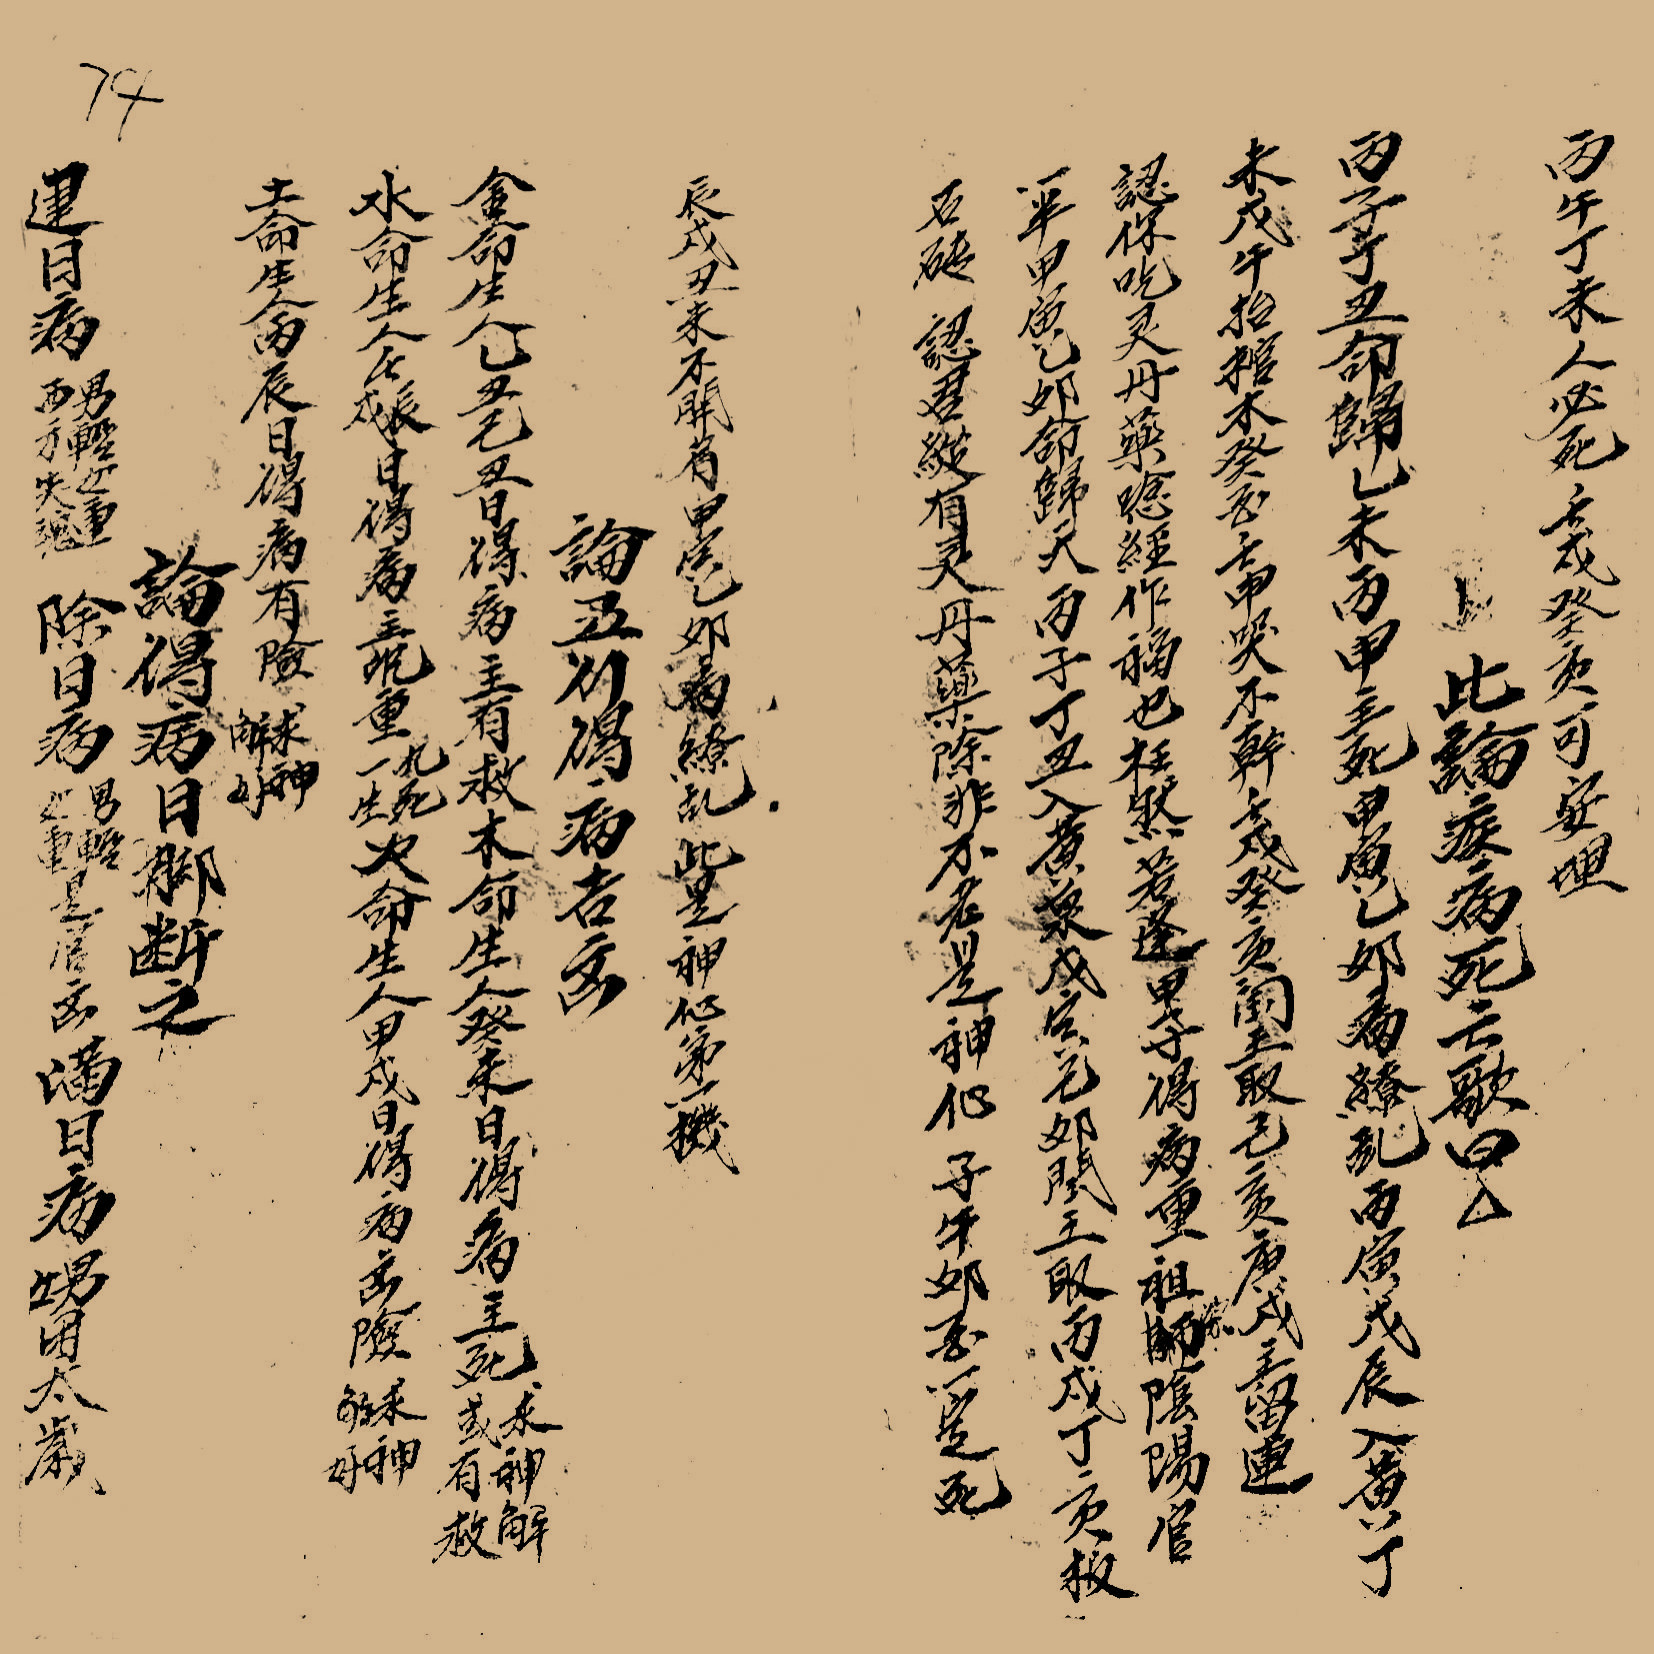 丙午丁未人必死壬戌癸亥可安埋
此論疾病死亡歌曰
丙子丁丑命歸乙未丙申主死甲寅乙卯病繚乱丙寅戊辰入黄丁
未戊午抬棺木癸酉壬申哭不幹壬戌癸亥閻王取己亥庚戌主留連
認你吃灵丹藥唸經作福也枉然若逢甲子得病重祖師陰陽官
一平甲寅乙卯命歸天丙子丁丑入黄泉戊寅己卯閻王取丙戌丁亥板
石磚 認君縱有灵丹藥除非不老是神仙子午卯酉一定死
辰戌丑未不開肯甲寅乙卯病繚乱此是神仙第一機
論五行得病吉凶
金命生人乙丑己丑日得病主有救木命生人癸未日得病主死求神解或有救
水命生人丘戌辰日得病主沉重九死一生火命生人甲戌日得病凶險求神解好
土命生人丙辰日得病有險求神解好
論得病日脚断之
建日病男輕女重西方失魂除日病男輕女重是官凶滿日病甥男太歲
74